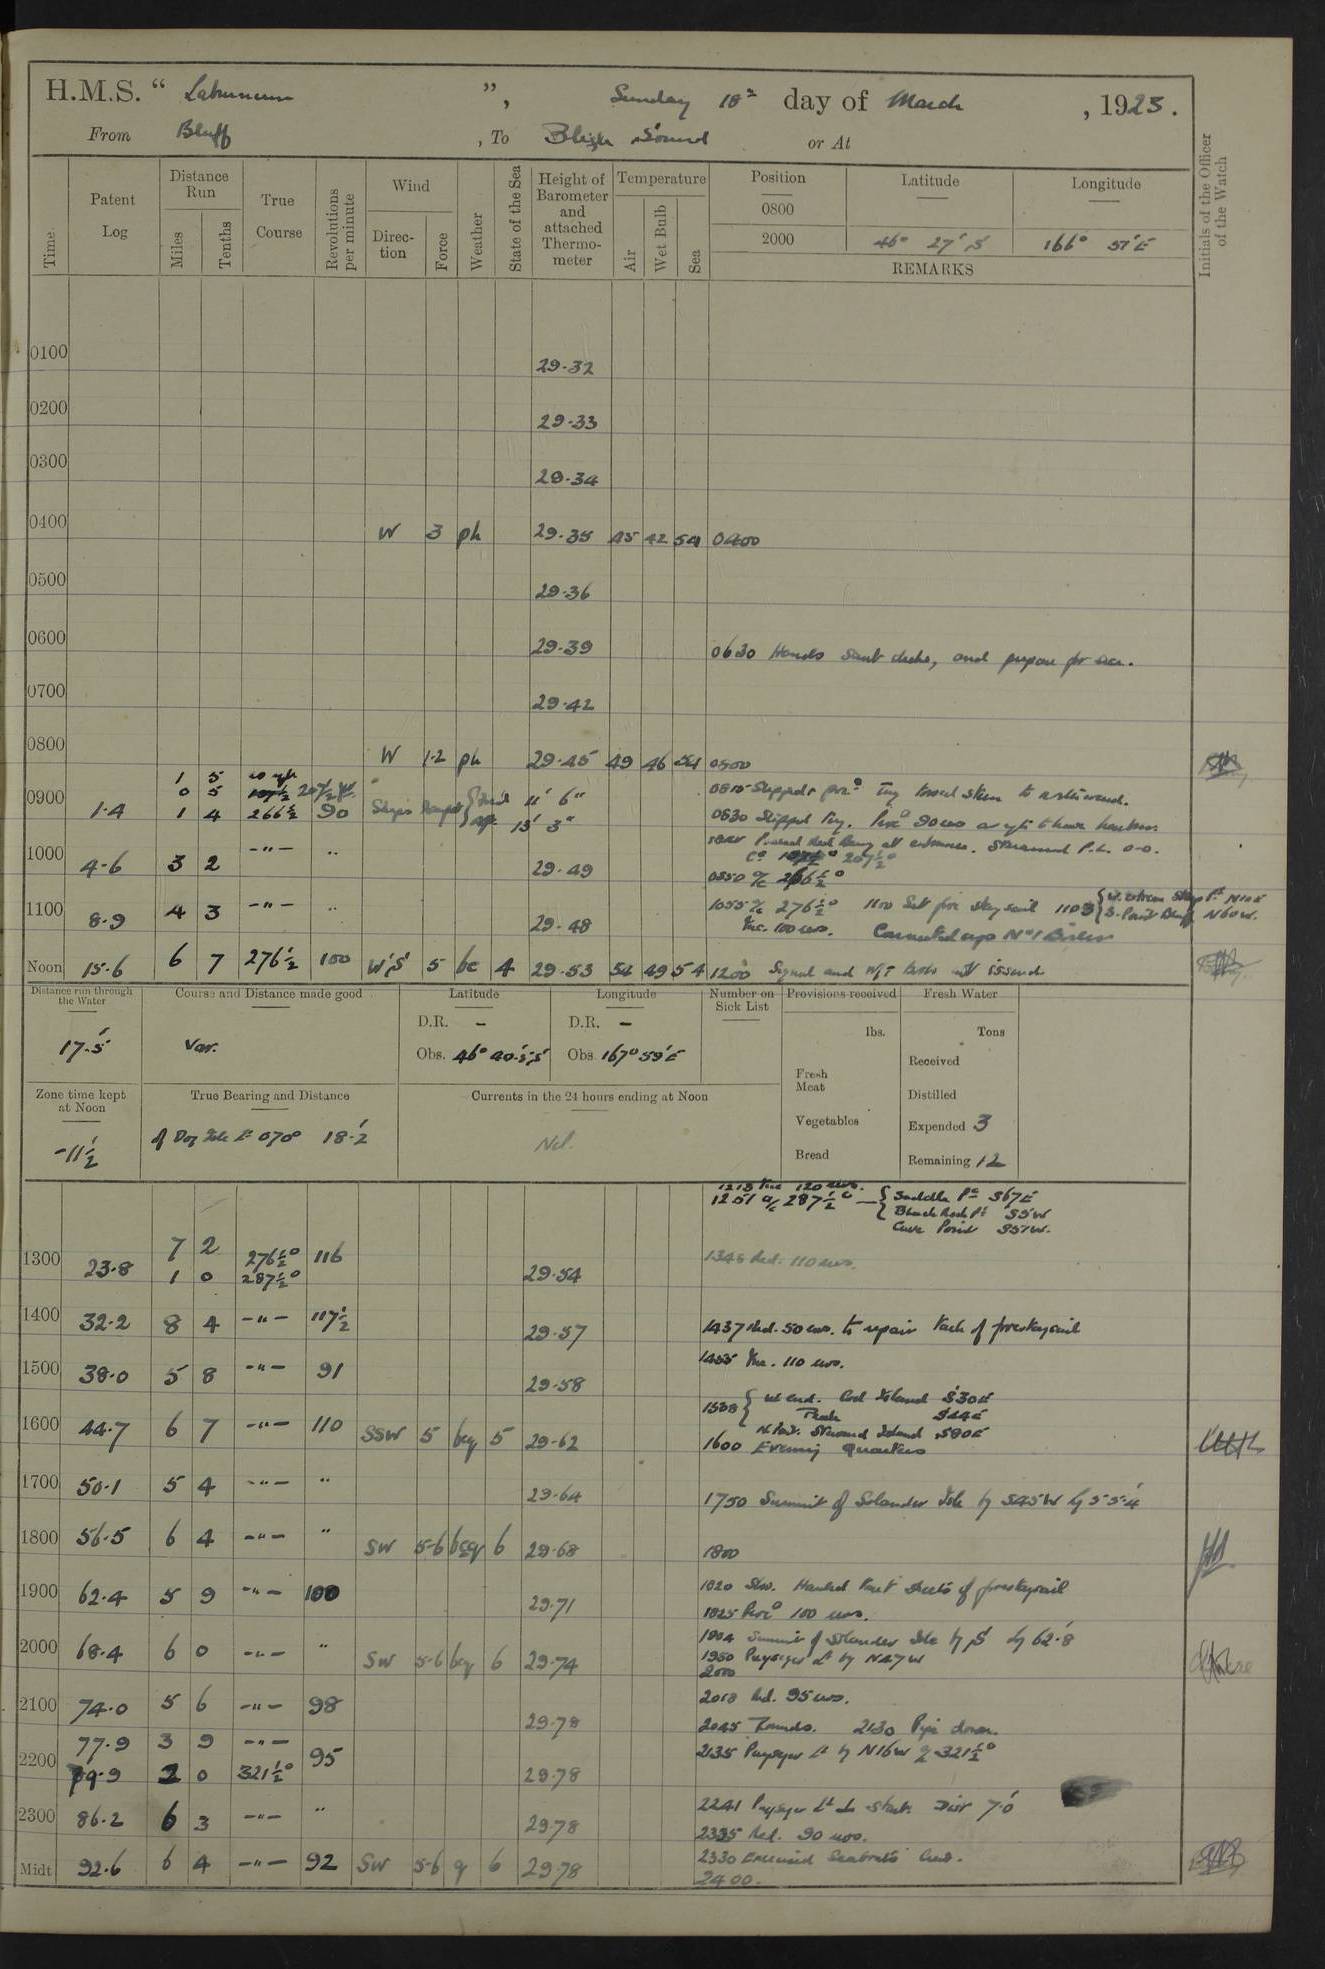 H.M.S. “ Laburnum ”, Sunday 18th day of March , 1923.
From Bluff , To Bligh Sound or At
Time.
Patent Log
Distance Run
Miles
Tenths
True Course
Revolutions per minute
Wind
Direction
Force
Weather
State of the Sea
Height of Barometer and attached Thermometer
Temperature
Air
Wet Bulb
Sea
Position
0800
2000
Latitude
46° 27' S
Longitude
166° 51' E
REMARKS
Initials of the Officer of the Watch
0100 29·32
0200 29·33
0300 29·34
0400 W 3 ph 29·35 45 42 54 0400
0500 29·36
0600 29·39 0630 Hands and prepare for sea.
0700 29·42
0800 W 1-2 ph 29·45 49 46 54 0800
1 5
0 5 207½
0900 1·4 1 4 266½ 90 Ships draught 11' 6" 13' 3"
0815 Slipped & proc. Tug towed stern to
0830 Slipped Tug.
entrance. Streamed P.L. 0-0.
Co 207½°
1000 4·6 3 2 -"- " 29·49 0850 a/c 266½°
1100 8·9 4 3 -"- " 29·48 1055 a/c 276½° 1100 Set fore staysail 1103
Inc. 100 revs. Connected up No 1 Boiler
N60W.
Noon 15·6 6 7 276½ 100 W'S' 5 bc 4 29·53 52 49 54 1200 Signal and W/T issued
Distance run through the Water
17·5'
Course and Distance made good
Var.
Latitude
D.R. -
Obs. 46° 40·5' S
Longitude
D.R. -
Obs. 167° 59' E
Number on Sick List
Provisions received
lbs.
Fresh Meat
Vegetables
Bread
Fresh Water
Tons
Received
Distilled
Expended 3
Remaining 12
Zone time kept at Noon
-11½
True Bearing and Distance
of Dog Isle Lt 070° 18·2'
Currents in the 24 hours ending at Noon
Nil.
1213 Inc 120 revs.
1251 a/c 287½° Saddle Pt S67E
Black Rock Pt S5W
Cave Point S51W.
1300 23·8 7 2 276½° 116
1 0 287½° 29·54 1345 Red. 110 revs.
1400 32·2 8 4 -"- 117½ 29·57 1437 Red. 50 revs. to repair tack of forestaysail
1500 38·0 5 8 -"- 91 29·58 1455 Inc. 110 revs.
1538 W end. Cod Island S30E
Peak S44E
Island S80E
1600 44·7 6 7 -"- 110 SSW 5 bcq 5 29·62 1600 Evening Quarters
1700 50·1 5 4 -"- " 29·64 1750 Summit of Solander Isle by S45W
1800 56·5 6 4 -"- " SW 5-6 bcq 6 29·68 1800
1900 62·4 5 9 -"- 100 29·71 1820 Slow. Hauled sheets of forestaysail
1825 Proc. 100 revs.
1904 Summit of Solander Isle by S' by 62·8'
1950 Puysegur Lt by N47W
2000 68·4 6 0 -"- " SW 5-6 bcq 6 29·74 2000
2100 74·0 5 6 -"- 98 29·78 2018 Red. 95 revs.
2045 Rounds. 2130 Pipe down.
77·9 3 9 -"-
2200 79·9 2 0 321½° 95 29·78 2135 Puysegur Lt by N16W a/c 321½°
2300 86·2 6 3 -"- " 29·78 2241 Puysegur Lt Dist 7·0'
2335 Red. 90 revs.
2330 Exercised Seaboat's Crew.
Midt 92·6 6 4 -"- 92 SW 5-6 q 6 29·78 2400.